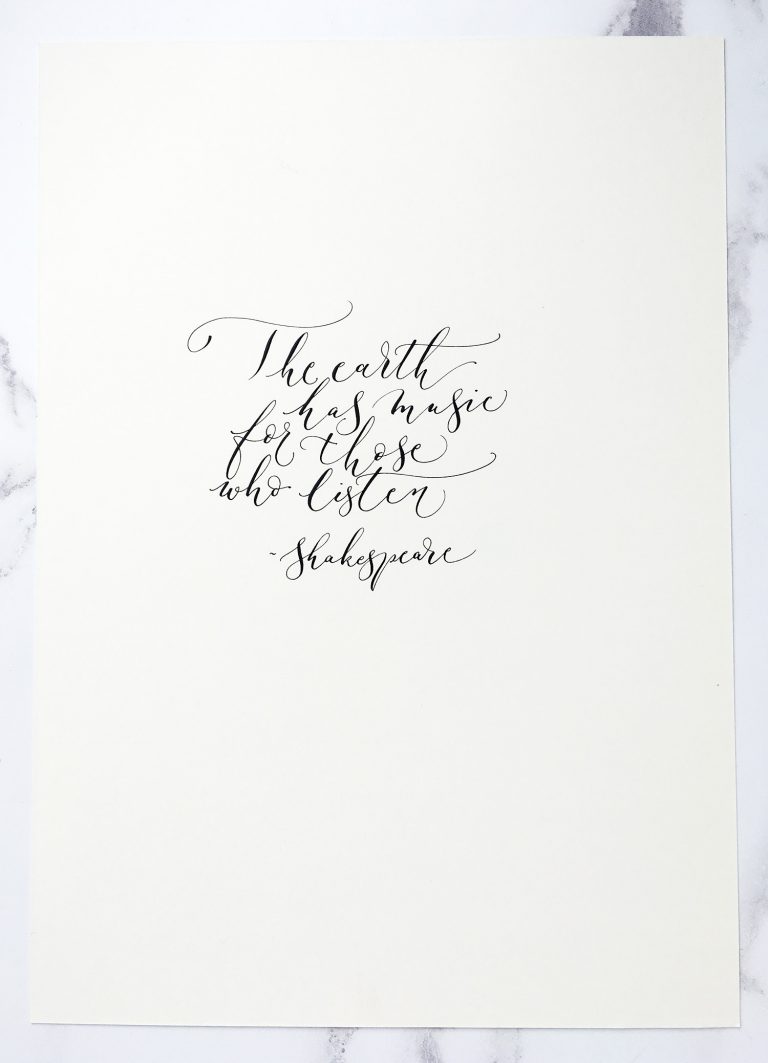 The earth
has music
for those
who listen
~Shakespeare